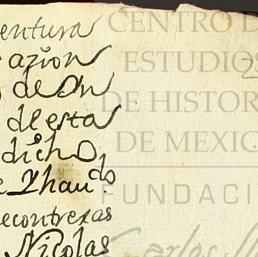 entura
azion
de Dn
de esta
dicho,
e Yhan do
econtreras
Nicolas
CENTRO D
ESTUDIO
DE HISTOR
DE MEXIC
FUNDACI
Carlos